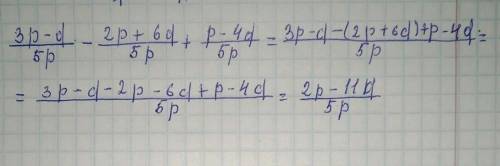 (3p-d)/5p - (2p+6d)/5p + (p-4d)/5p = (3p-d-(2p+6d)+p-4d)/5p =
= (3p-d-2p-6d+p-4d)/5p = (2p-11d)/5p